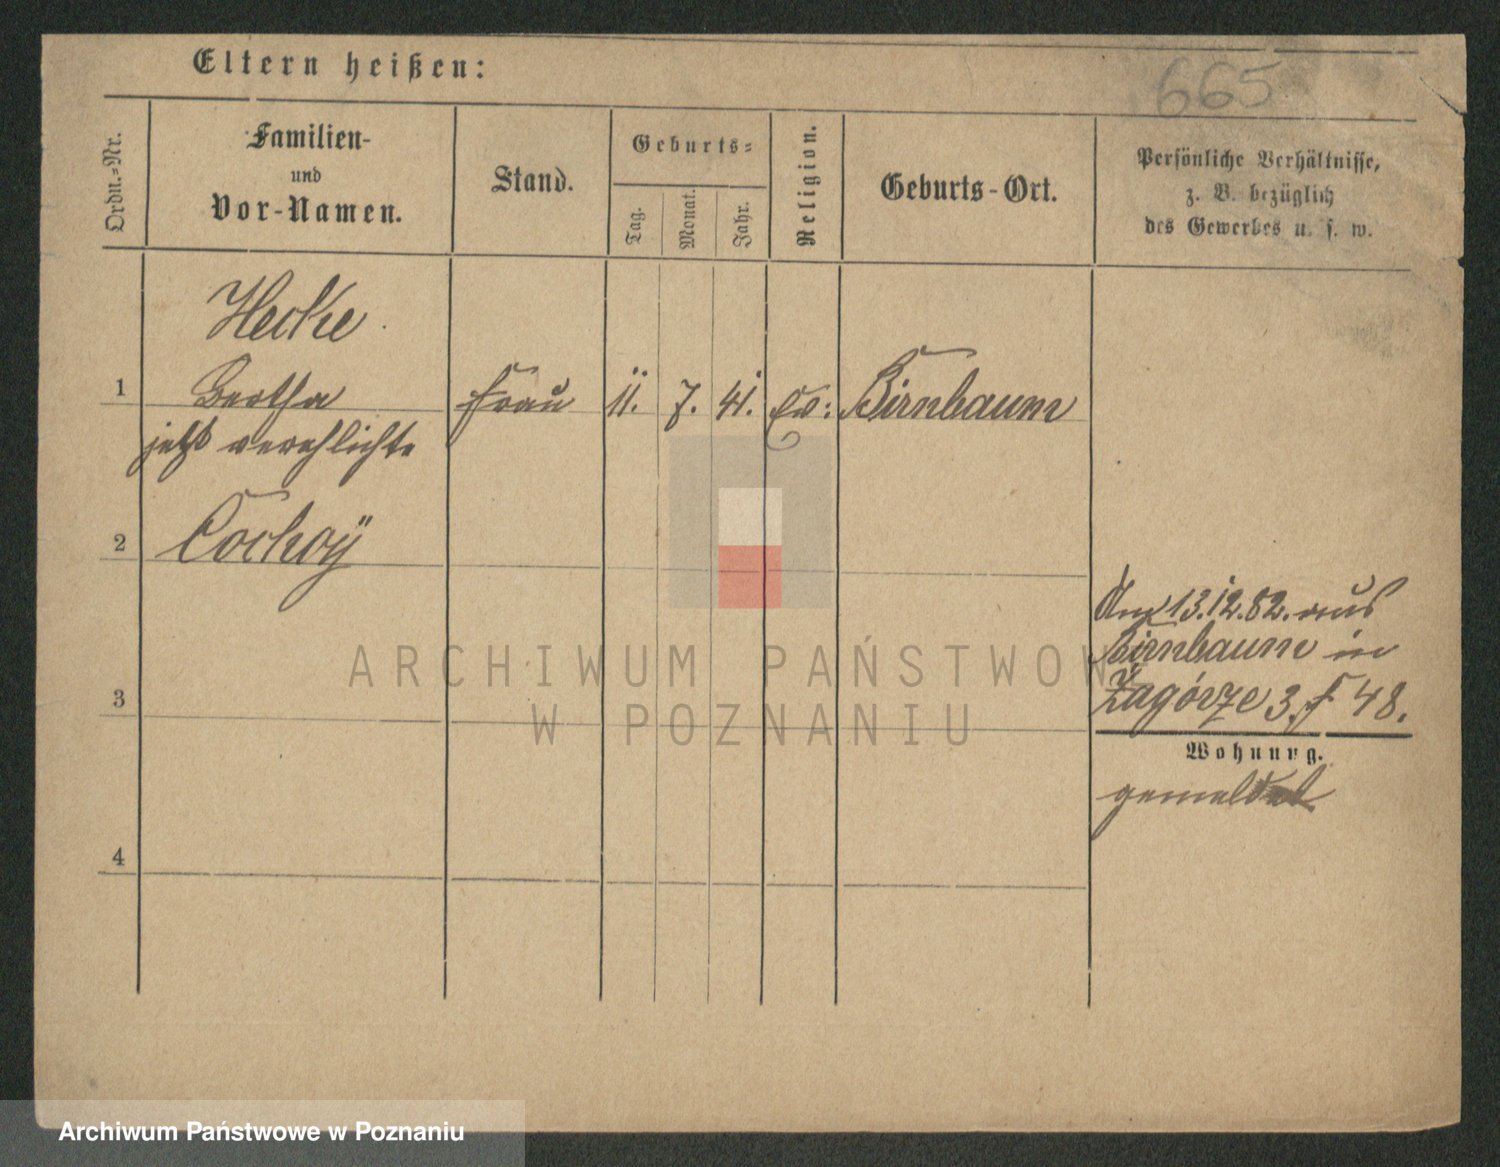 Eltern heißen:
665
Ordn.-Nr.
Familien-
und
Vor-Namen.
Stand.
Geburts-
Tag.
Monat.
Jahr.
Religion.
Geburts-Ort.
Persönliche Verhältnisse,
z. B. bezüglich
des Gewerbes u. s. w.
Hecke
1 Bertha Frau 11. 7. 41. Ev: Birnbaum
jetzt verehlichte
2 Cochoÿ
Am 13.12.82. aus
Birnbaum in
Zagórze 3, f 48.
3
Wohnung.
gemeldet
4
ARCHIWUM PAŃSTWOW
W POZNANIU
Archiwum Państwowe w Poznaniu